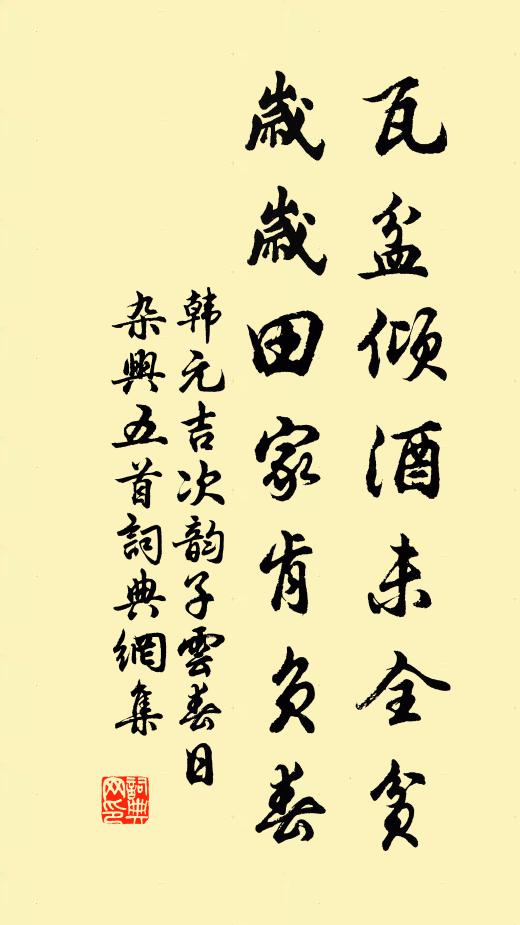 瓦盆倾酒未全贫
歲歲田家肯負春
韩元吉次韵子雲春日
杂興五首詞典網集
詞典
网印